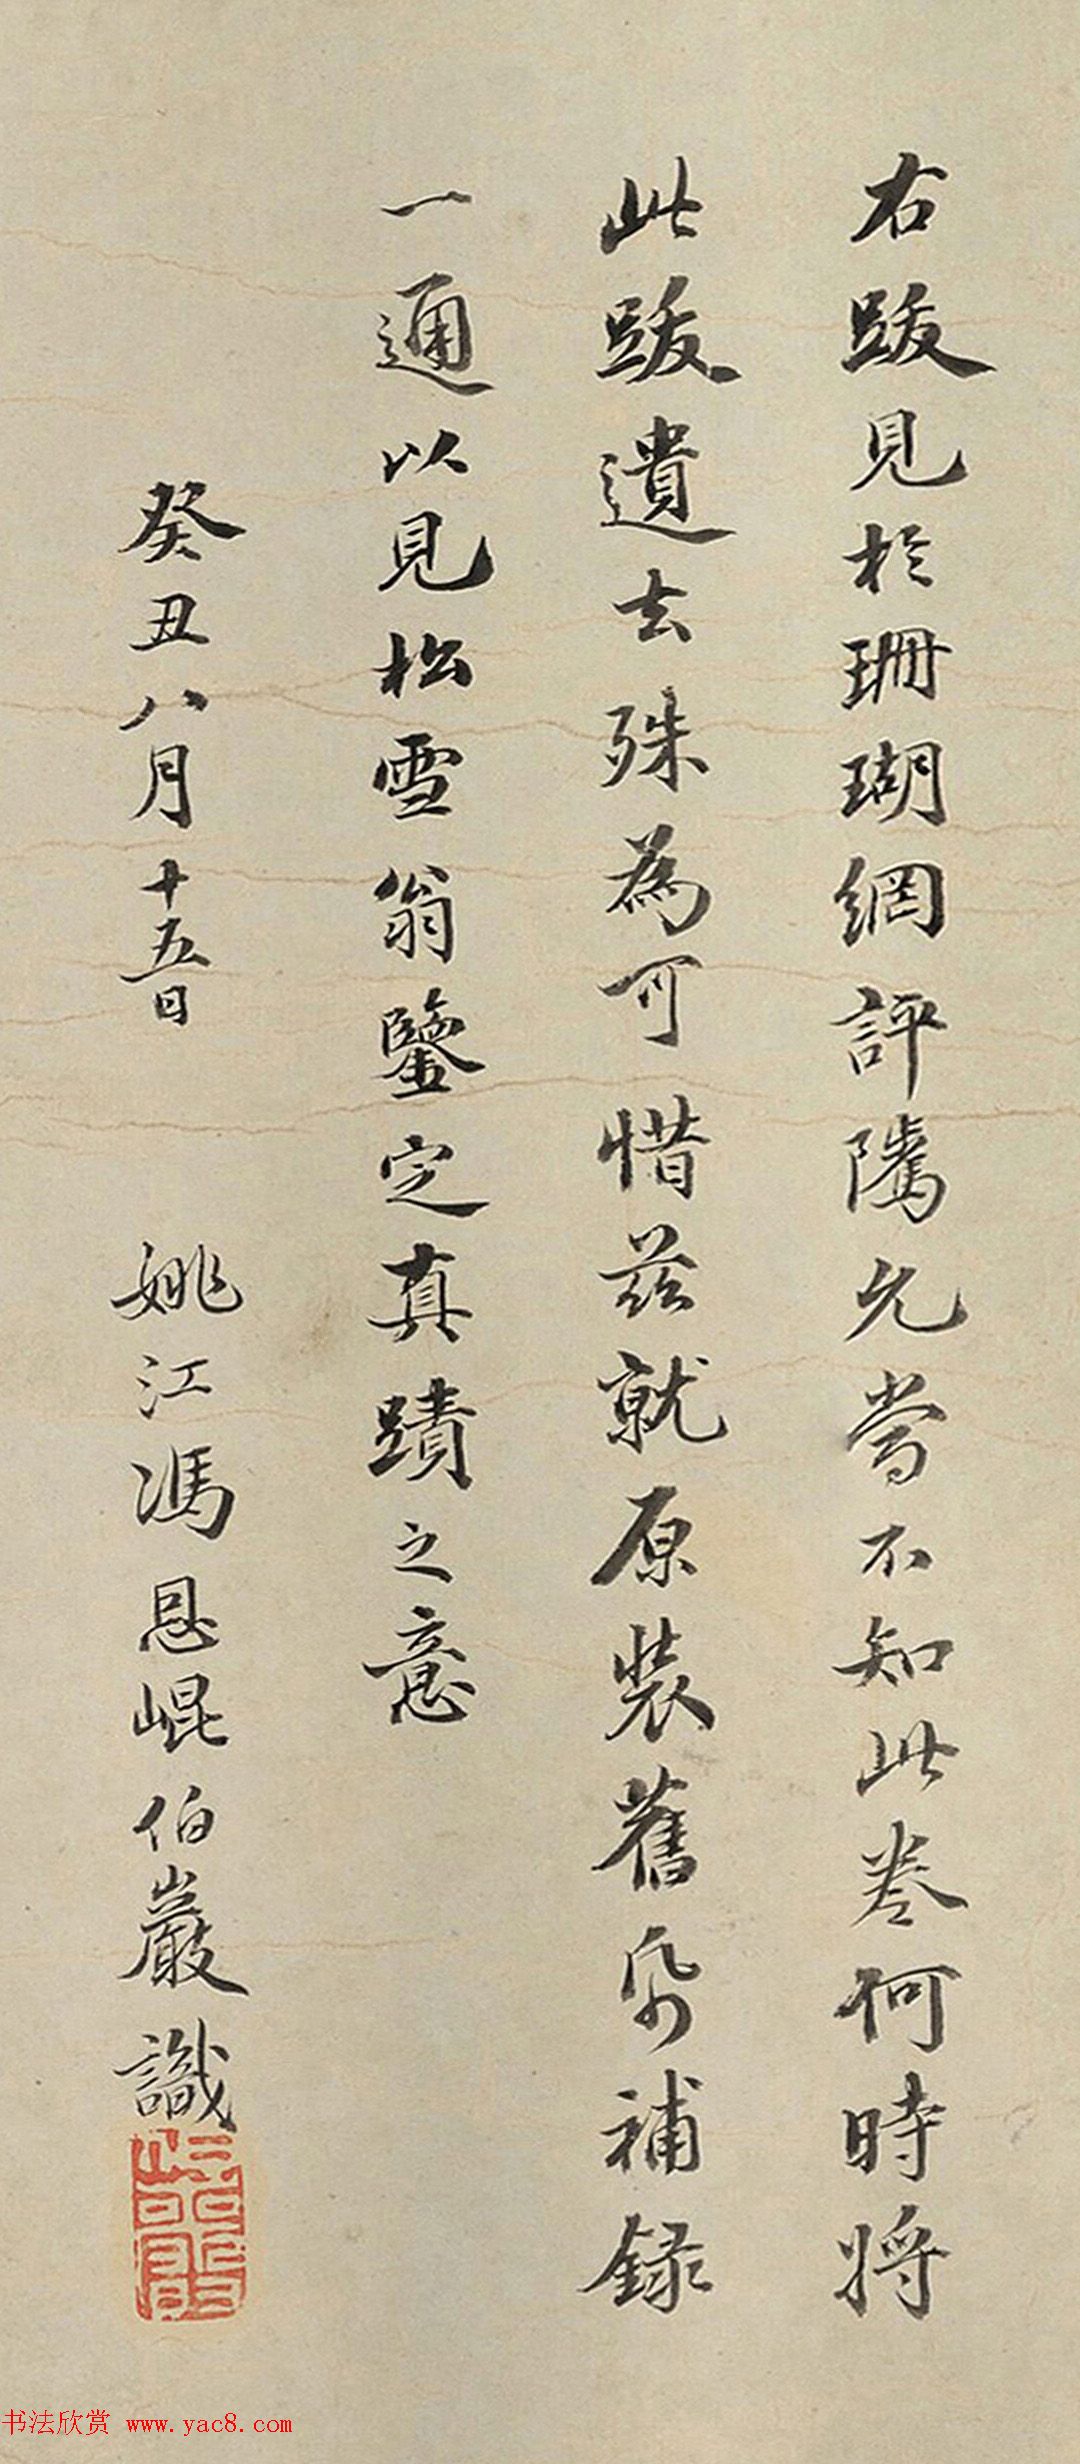 右跋見於珊瑚網評隲允當不知此卷何時將
此跋遺去殊為可惜茲就原裝舊帋補錄
一通以見松雪翁鑒定真蹟之意
癸丑八月十五日 姚江馮恩崐伯巖識
书法欣赏 www.yac8.com